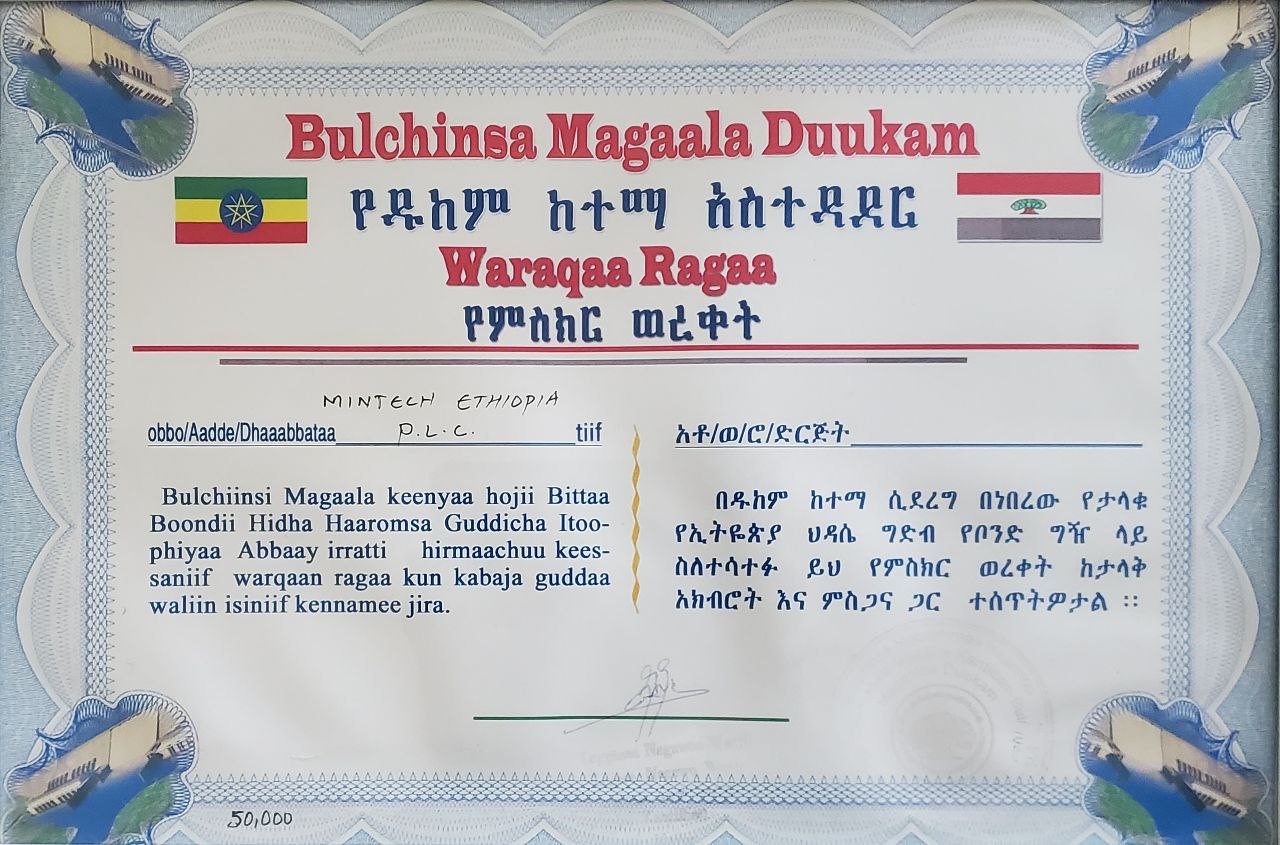 Bulchinsa Magaala Duukam
የዱከም ከተማ አስተዳደር
Waraqaa Ragaa
የምስክር ወረቀት
MINTECH ETHIOPIA
obbo/Aadde/Dhaaabbataa P.L.C. tiif
Bulchiinsi Magaala keenyaa hojii Bittaa
Boondii Hidha Haaromsa Guddicha Itoo-
phiyaa Abbaay irratti hirmaachuu kees-
saniif warqaan ragaa kun kabaja guddaa
waliin isiniif kennamee jira.
አቶ/ወ/ሮ/ድርጅት
በዱከም ከተማ ሲደረግ በነበረው የታላቁ
የኢትዬጵያ ህዳሴ ግድብ የቦንድ ግዥ ላይ
ስለተሳተፉ ይህ የምስክር ወረቀት ከታላቅ
አክብሮት እና ምስጋና ጋር ተሰጥትዎታል ፡፡
50,000